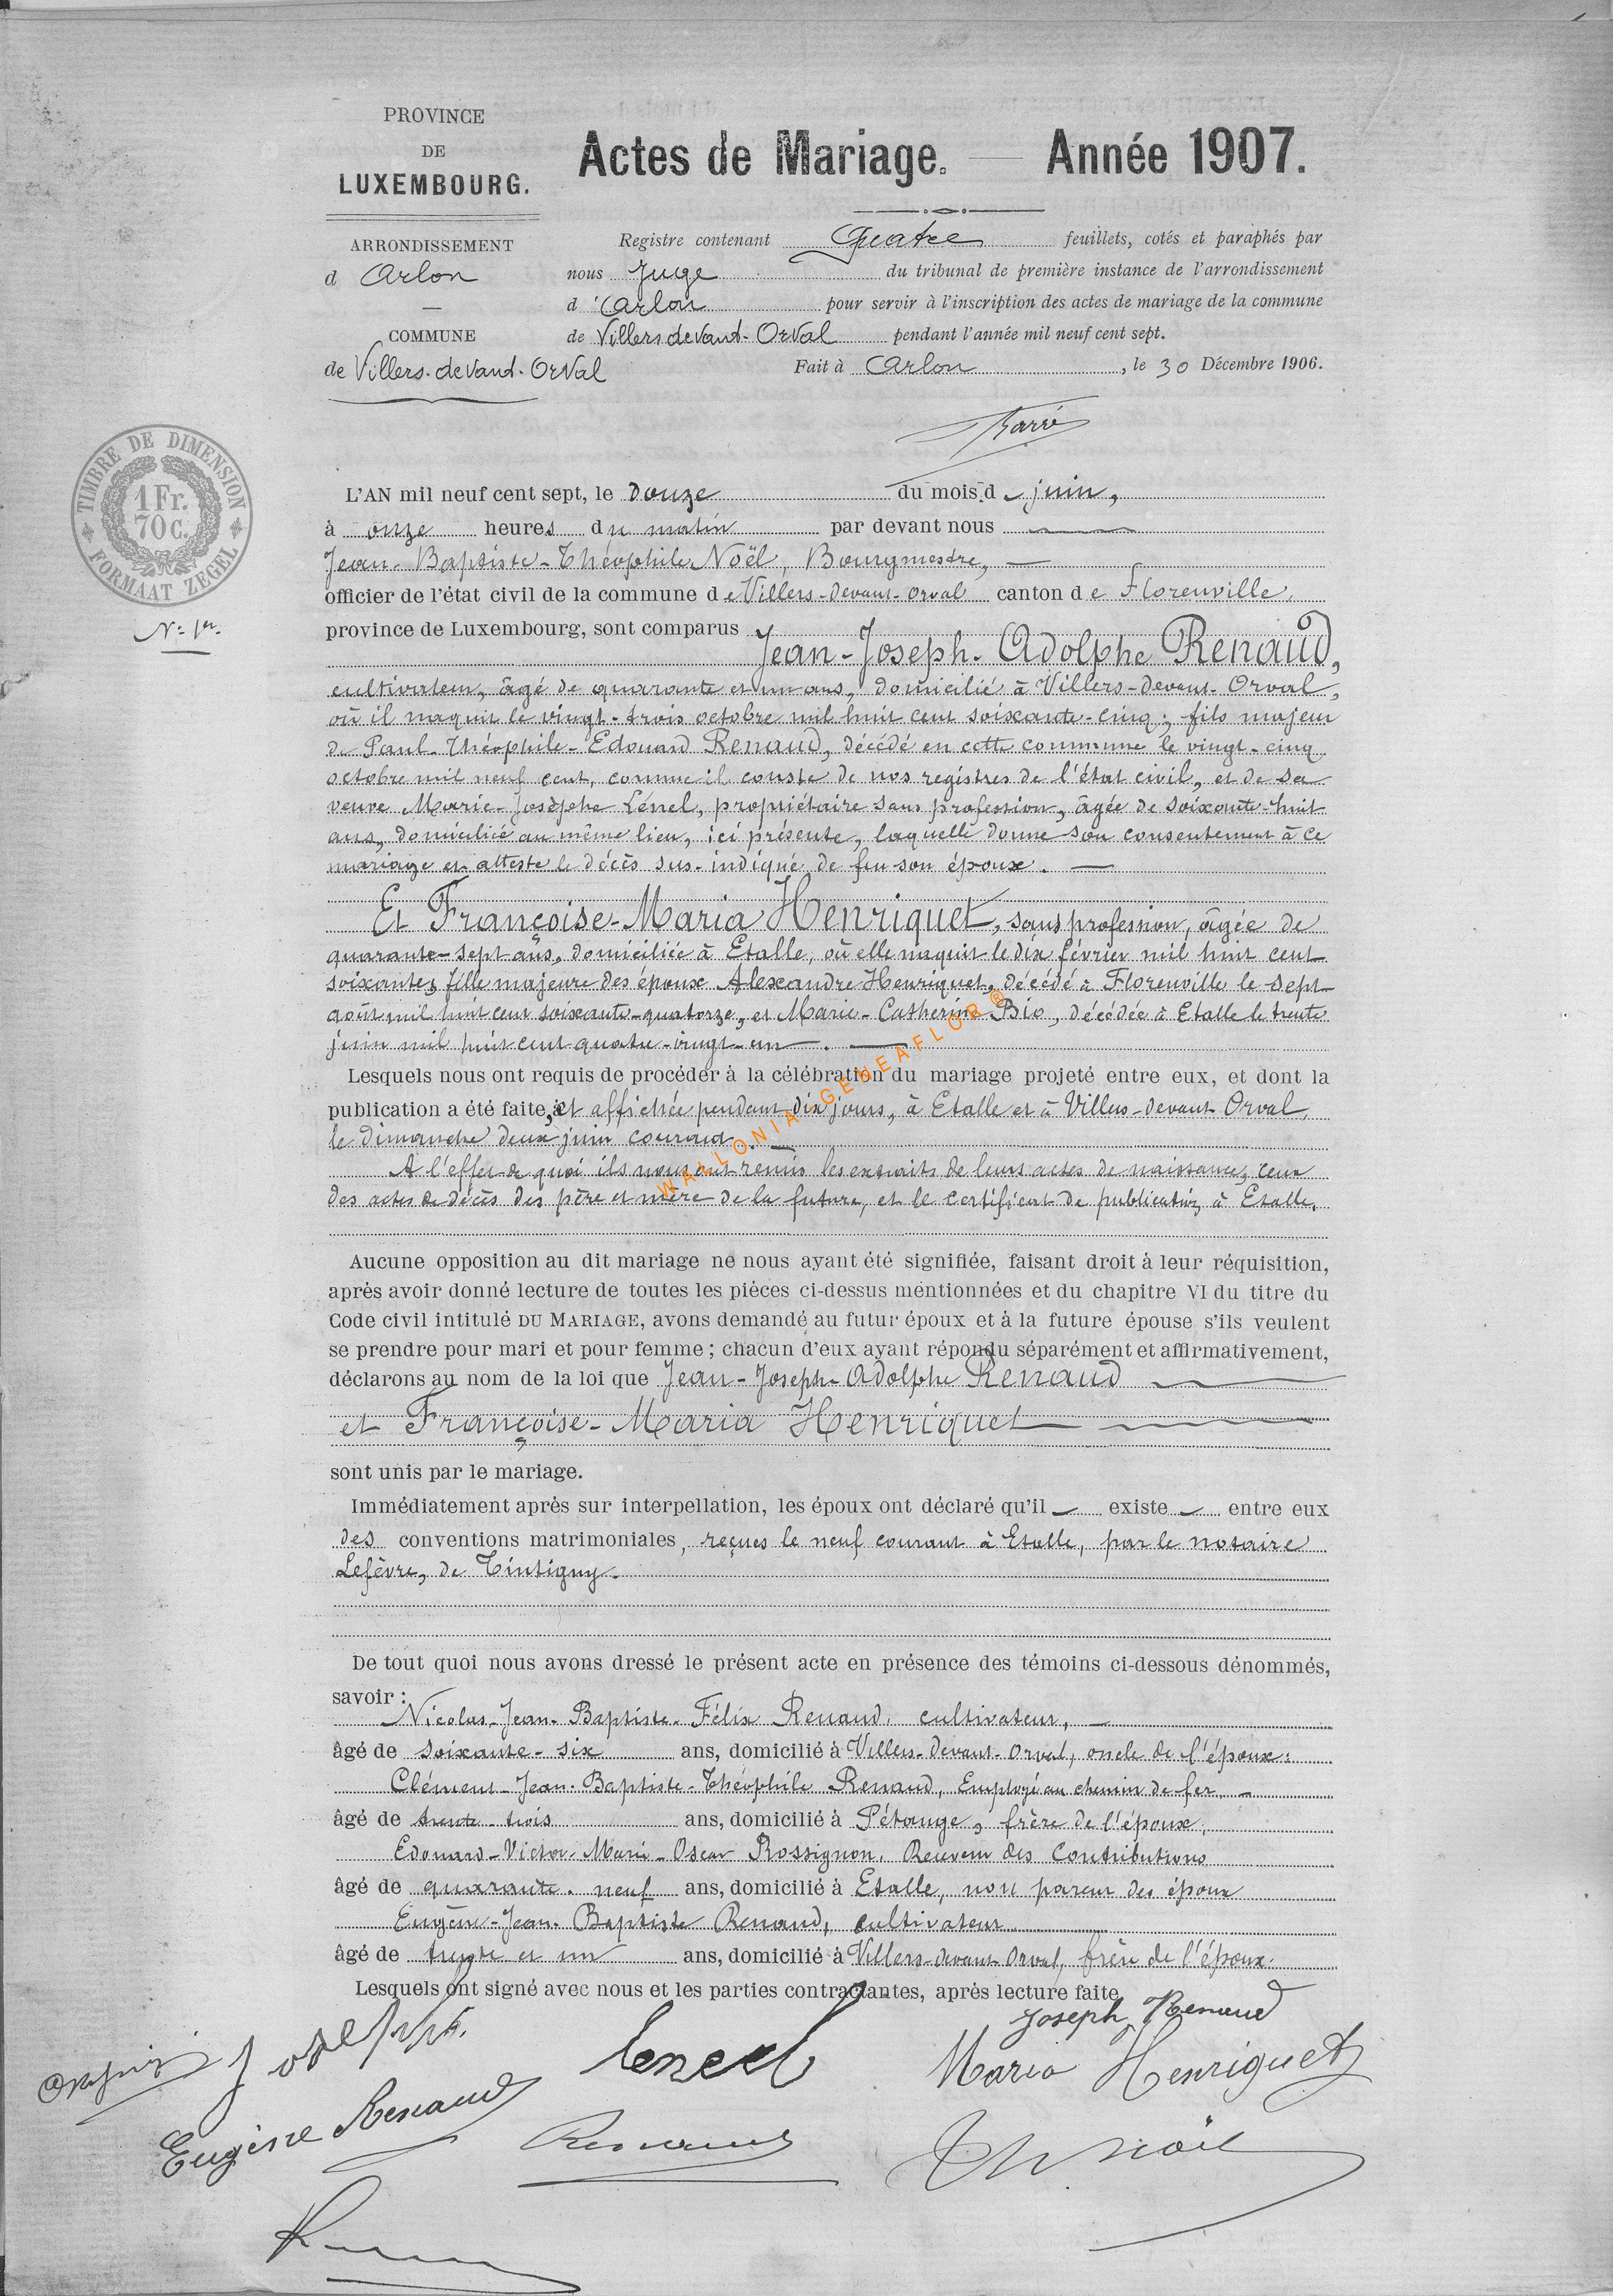 PROVINCE
DE
LUXEMBOURG.
Actes de Mariage. — Année 1907.
ARRONDISSEMENT
d Arlon
COMMUNE
de Villers-devant-Orval
Registre contenant Quatre feuillets, cotés et paraphés par
nous Juge du tribunal de première instance de l'arrondissement
d'Arlon pour servir à l'inscription des actes de mariage de la commune
de Villers devant-Orval pendant l'année mil neuf cent sept.
Fait à Arlon, le 30 Décembre 1906.
TIMBRE DE DIMENSION
1 Fr.
70 c.
FORMAAT ZEGEL
N° 1er.
L'AN mil neuf cent sept, le douze du mois d juin,
à onze heures du matin par devant nous
Jean-Baptiste-Théophile Noël, Bourgmestre,
officier de l'état civil de la commune de Villers-devant-Orval canton de Florenville,
province de Luxembourg, sont comparus
Jean-Joseph-Adolphe Renaud,
cultivateur, âgé de quarante et un ans, domicilié à Villers-devant-Orval,
où il naquit le vingt-trois octobre mil huit cent soixante-cinq; fils majeur
de Paul-Théophile-Edouard Renaud, décédé en cette commune le vingt-cinq
octobre mil neuf cent, comme il conste de nos registres de l'état civil, et de sa
veuve Marie-Josèphe Lénel, propriétaire sans profession, âgée de soixante-huit
ans, domiciliée au même lieu, ici présente, laquelle donne son consentement à ce
mariage et atteste le décès sus-indiqué de feu son époux. —
Et Françoise-Maria Henriquet, sans profession, âgée de
quarante-sept ans, domiciliée à Etalle, où elle naquit le dix février mil huit cent
soixante, fille majeure des époux Alexandre Henriquet, décédé à Florenville le sept
août mil huit cent soixante-quatorze, et Marie-Catherine Bio, décédée à Etalle le trente
juin mil huit cent quatre-vingt-un. —
Lesquels nous ont requis de procéder à la célébration du mariage projeté entre eux, et dont la
publication a été faite, et affichée pendant dix jours, à Etalle et à Villers-devant-Orval,
le dimanche deux juin courant. —
A l'effet de quoi ils nous ont remis les extraits de leurs actes de naissance, ceux
des actes de décès des père et mère de la future, et le certificat de publication à Etalle.
WALLONIA-GENEAFLOR®
Aucune opposition au dit mariage ne nous ayant été signifiée, faisant droit à leur réquisition,
après avoir donné lecture de toutes les pièces ci-dessus mentionnées et du chapitre VI du titre du
Code civil intitulé DU MARIAGE, avons demandé au futur époux et à la future épouse s'ils veulent
se prendre pour mari et pour femme ; chacun d'eux ayant répondu séparément et affirmativement,
déclarons au nom de la loi que Jean-Joseph-Adolphe Renaud
et Françoise-Maria Henriquet
sont unis par le mariage.
Immédiatement après sur interpellation, les époux ont déclaré qu'il existe entre eux
des conventions matrimoniales, reçues le neuf courant à Etalle, par le notaire
Lefèvre, de Tintigny.
De tout quoi nous avons dressé le présent acte en présence des témoins ci-dessous dénommés,
savoir :
Nicolas-Jean-Baptiste-Félix Renaud, cultivateur, —
âgé de soixante-six ans, domicilié à Villers-devant-Orval, oncle de l'époux;
Clément-Jean-Baptiste-Théophile Renaud, Employé au chemin de fer, —
âgé de trente-trois ans, domicilié à Pétange, frère de l'époux,
Edouard-Victor-Marie-Oscar Rossignon, Receveur des Contributions
âgé de quarante-neuf ans, domicilié à Etalle, non parent des époux
Eugène-Jean-Baptiste Renaud, cultivateur
âgé de trente et un ans, domicilié à Villers-devant-Orval, frère de l'époux.
Lesquels ont signé avec nous et les parties contractantes, après lecture faite
Joseph Renaud
Lenel
Maria Henriquet
Eugène Renaud
Renaud
Th Noël